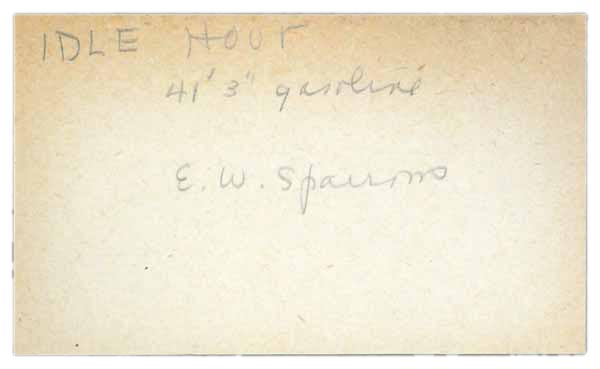 IDLE HOUr
41' 3" gasoline
E. W. Sparrows